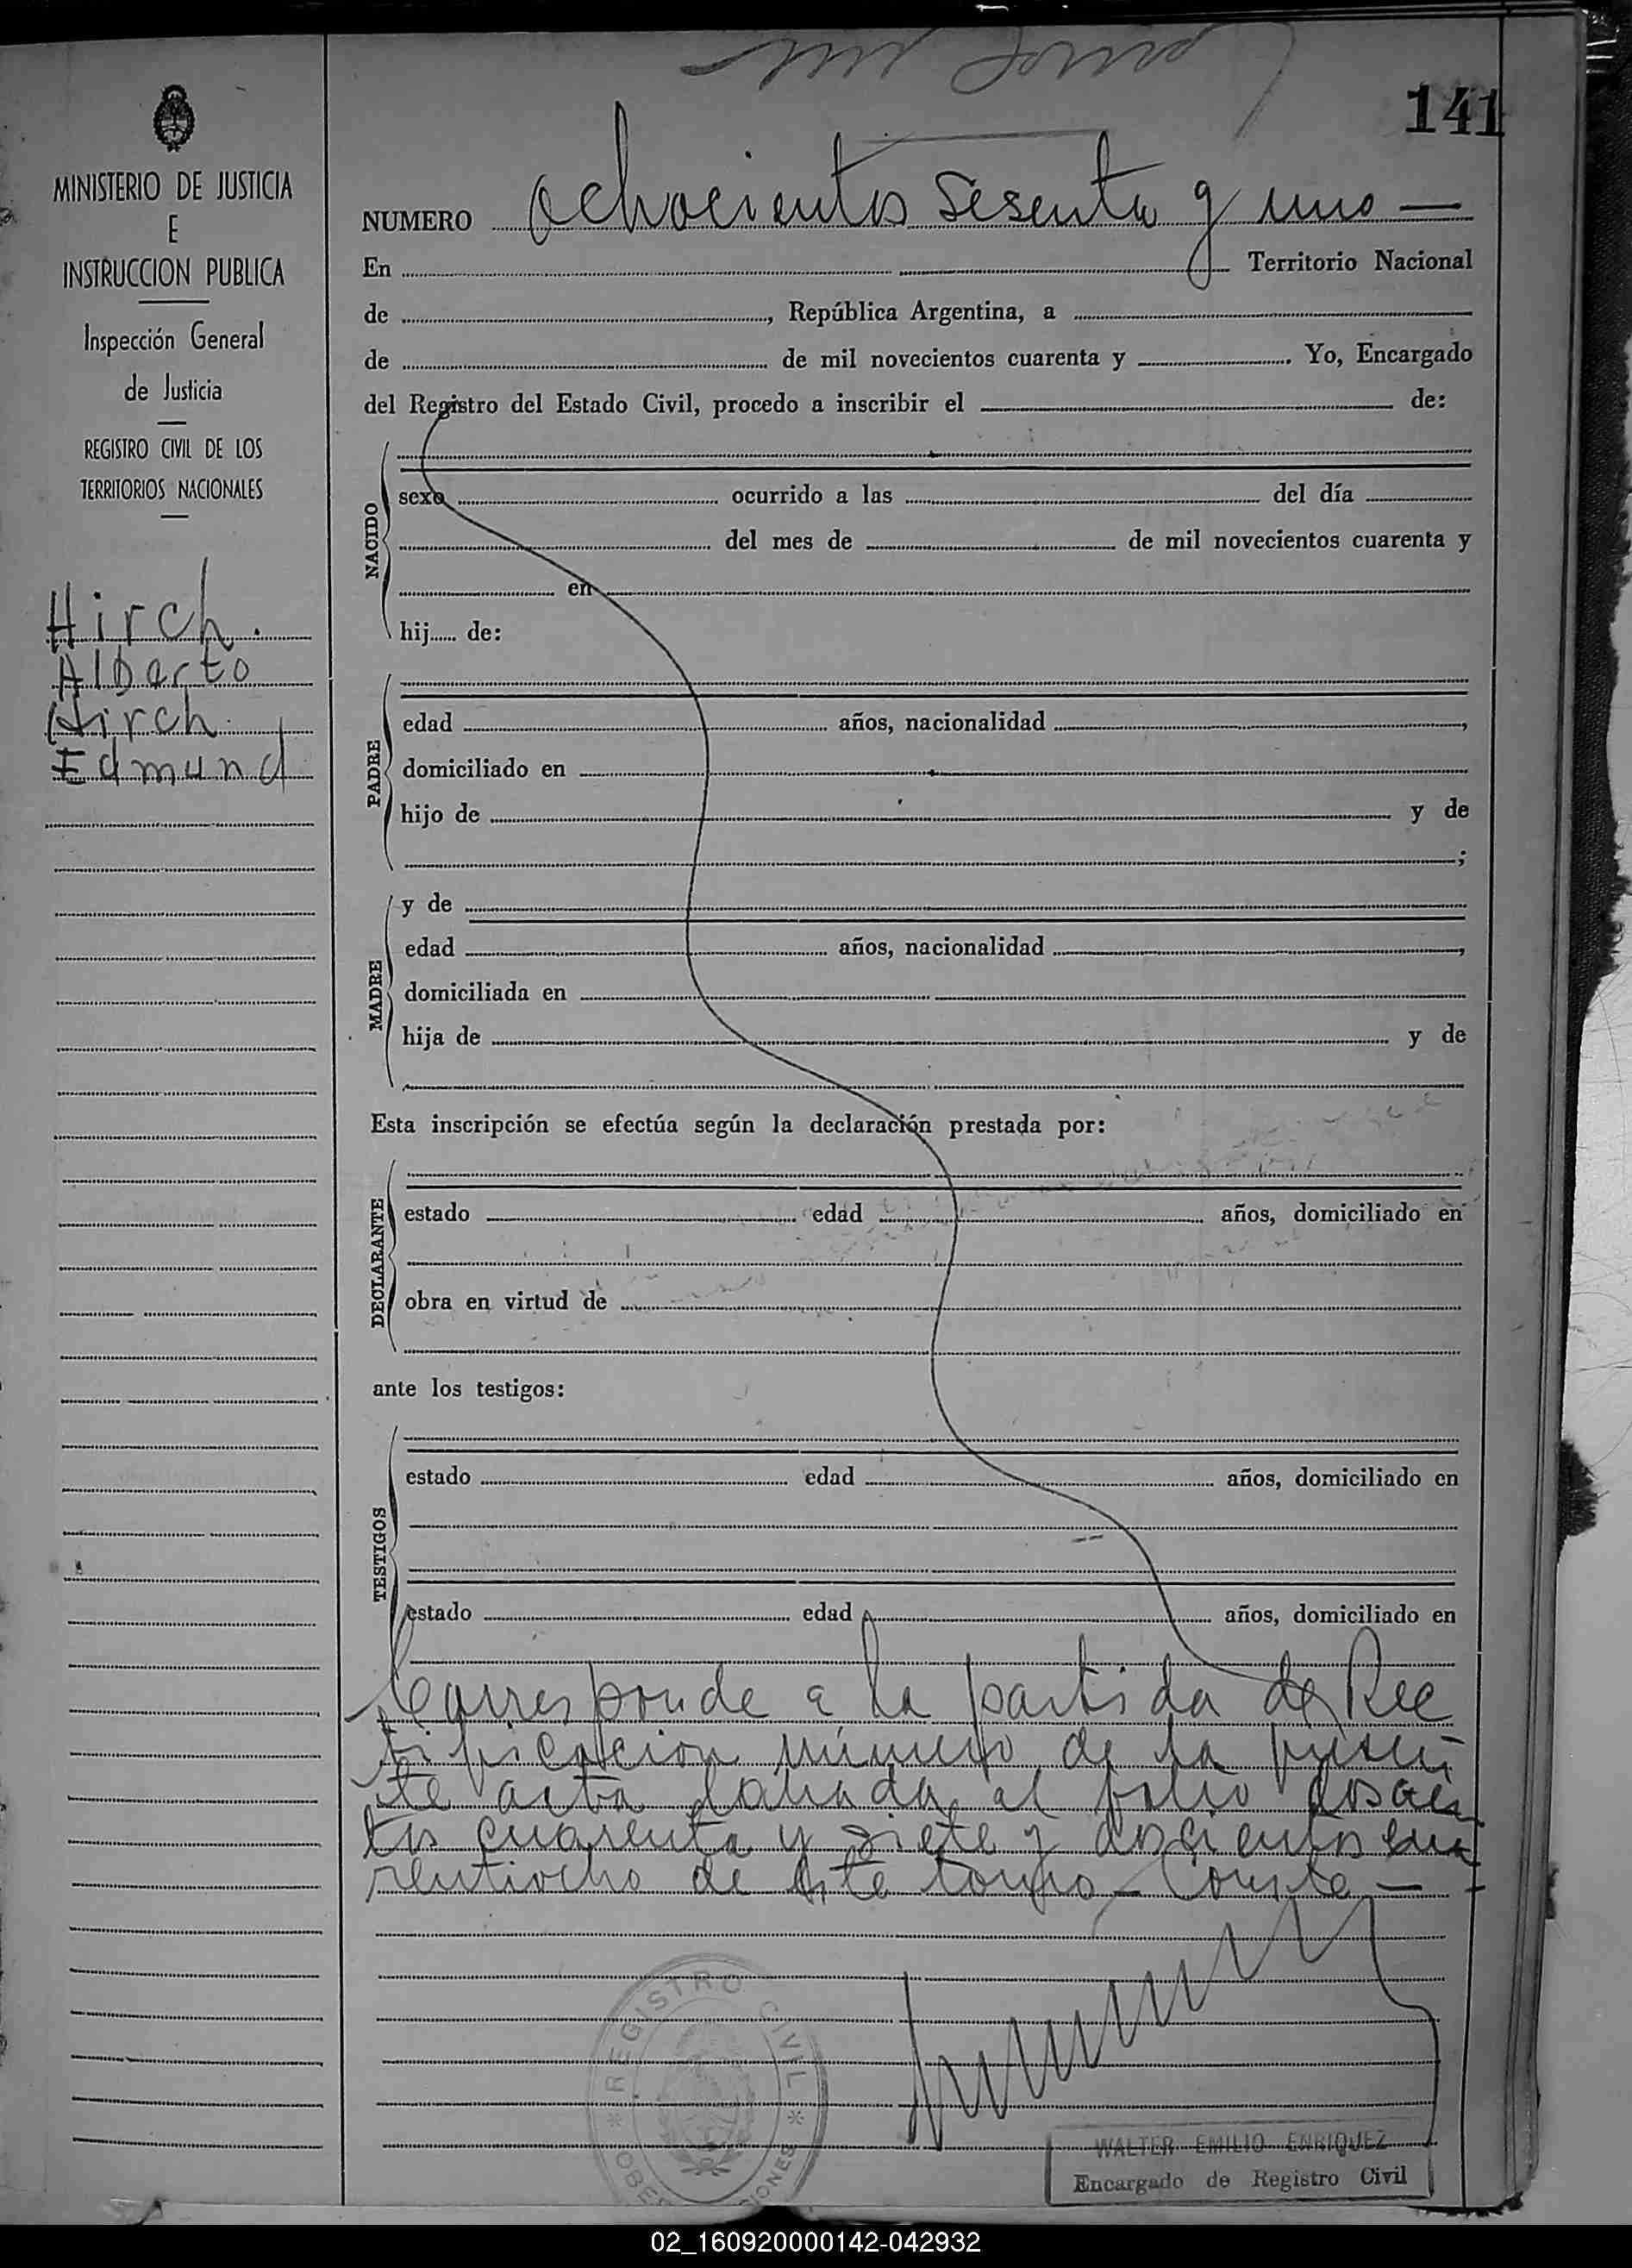 141
MINISTERIO DE JUSTICIA
E
INSTRUCCION PUBLICA
Inspección General
de Justicia
REGISTRO CIVIL DE LOS
TERRITORIOS NACIONALES
Hirch.
Alberto
Hirch
Edmund
NUMERO ochocientos sesenta y uno —
En Territorio Nacional
de , República Argentina, a
de de mil novecientos cuarenta y . Yo, Encargado
del Registro del Estado Civil, procedo a inscribir el de:
NACIDO
sexo ocurrido a las del día
del mes de de mil novecientos cuarenta y
en
hij...... de:
PADRE
edad años, nacionalidad ,
domiciliado en
hijo de y de
;
MADRE
y de
edad años, nacionalidad ,
domiciliada en
hija de y de
Esta inscripción se efectúa según la declaración prestada por:
DECLARANTE
estado edad años, domiciliado en
obra en virtud de
ante los testigos:
TESTIGOS
estado edad años, domiciliado en
estado edad años, domiciliado en
Corresponde a la partida de Rec
tificacion número de la presen
te acta labrada al folio doscien
tos cuarenta y siete y doscientos cua
rentiocho de este tomo - Conste —
REGISTRO CIVIL
WALTER EMILIO ENRIQUEZ
Encargado de Registro Civil
02_160920000142-042932